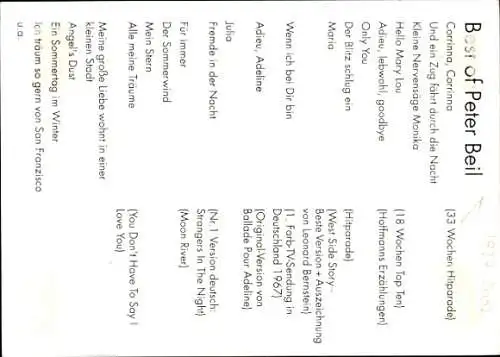 Best of Peter Beil
Corrinna, Corrinna (33 Wochen Hitparade)
Und ein Zug fährt durch die Nacht
Kleine Nervensäge Monika
Hello Mary Lou (18 Wochen Top Ten)
Adieu, lebwohl, goodbye (Hoffmanns Erzählungen)
Only You
Der Blitz schlug ein (Hitparade)
Maria (West Side Story -
Beste Version + Auszeichnung
von Leonard Bernstein)
Wenn ich bei Dir bin (1. Farb-TV-Sendung in
Deutschland 1967)
Adieu, Adeline (Original-Version von
Ballade Pour Adeline)
Julia
Fremde in der Nacht (Nr. 1 Version deutsch:
Strangers In The Night)
Für immer (Moon River)
Der Sommerwind
Mein Stern
Alle meine Träume (You Don't Have To Say I
Love You)
Meine große Liebe wohnt in einer
kleinen Stadt
Angel's Dust
Ein Sommertag im Winter
Ich träum so gern von San Franzisco
u.a.